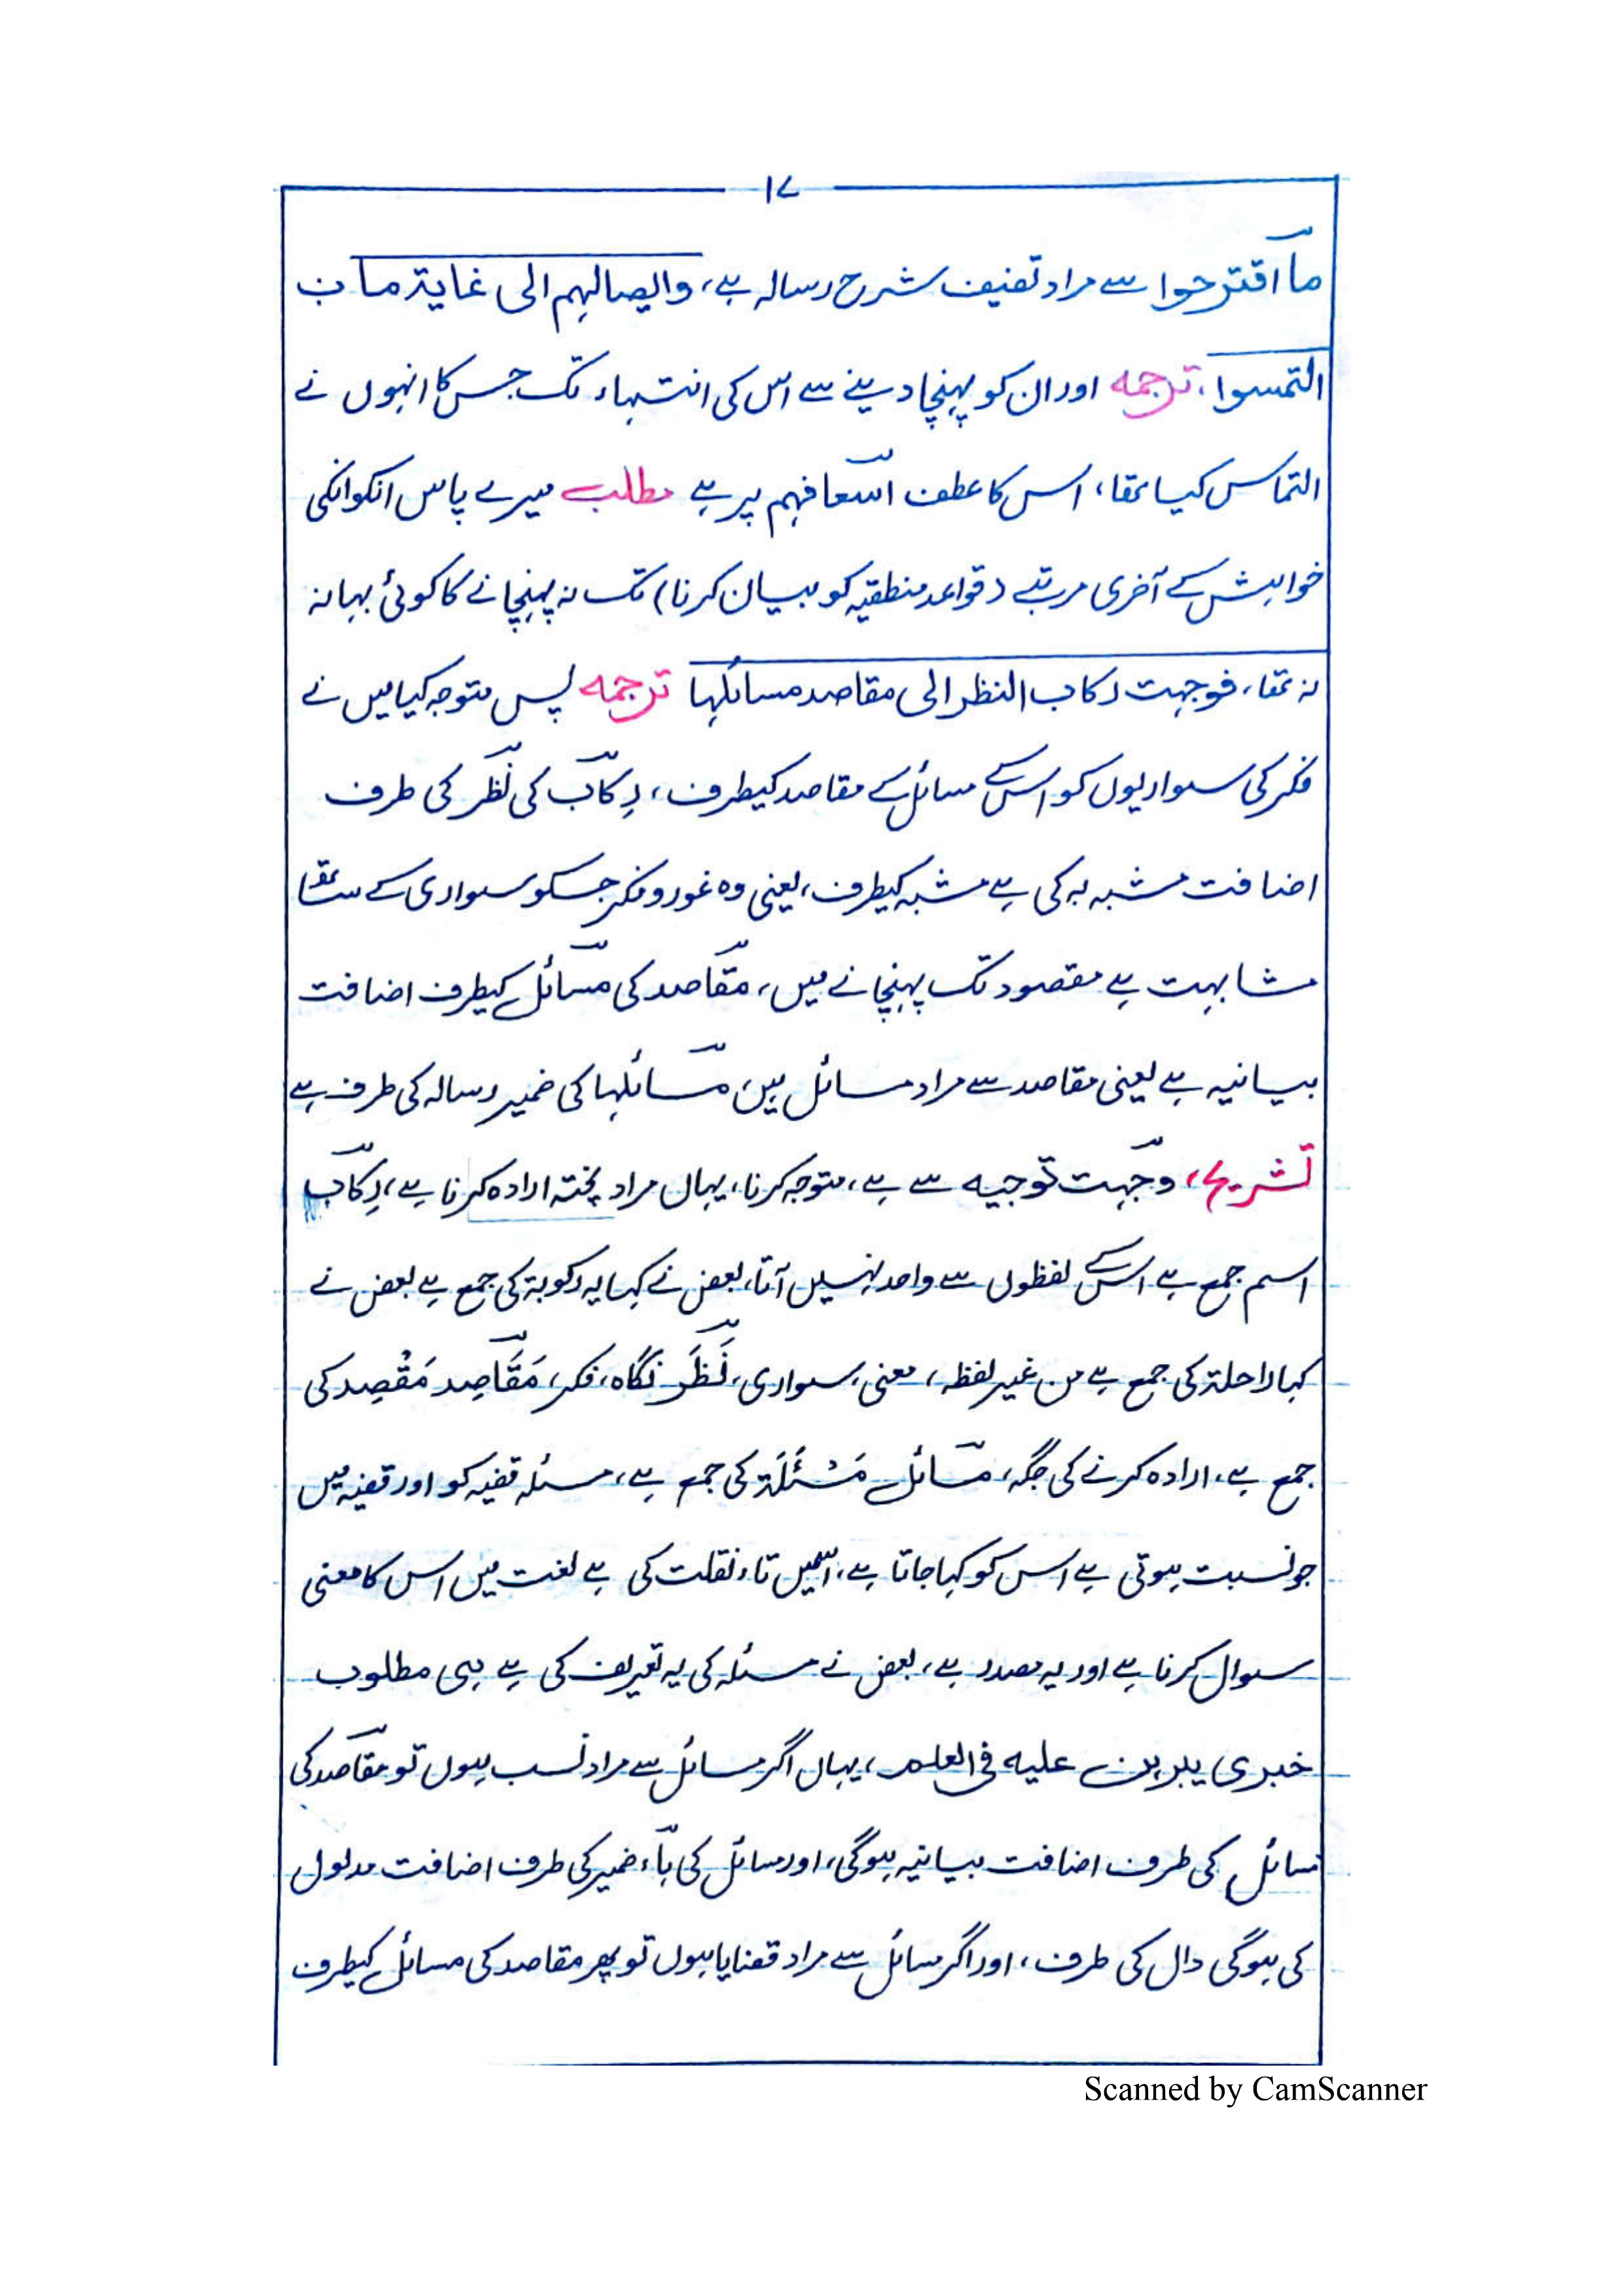 ۱۷
ما اقترحوا سے مراد تصنیف شرح رسالہ ہے، وایصالہم الی غایۃ ما
التمسوا، ترجمہ اور ان کو پہنچا دینے سے اس کی انتہاء تک جس کا انہوں نے
التماس کیا تھا، اس کا عطف اسعافہم پر ہے مطلب میرے پاس انکو انکی
خواہش کے آخری مرتبے (قواعد منطقیہ کو بیان کرنا) تک نہ پہنچانے کا کوئی بہانہ
نہ تھا، فوجہت رکاب النظر الی مقاصد مسائلہا ترجمہ پس متوجہ کیا میں نے
فکر کی سواریوں کو اس کے مسائل کے مقاصد کیطرف، رِکاب کی نظر کی طرف
اضافت مشبہ بہ کی ہے مشبہ کیطرف، یعنی وہ غور و فکر جسکو سواری کے ساتھ
مشابہت ہے مقصود تک پہنچانے میں، مقاصد کی مسائل کیطرف اضافت
بیانیہ ہے یعنی مقاصد سے مراد مسائل ہیں، مسائلہا کی ضمیر رسالہ کی طرف ہے
تشریح، وجہت توجیہ سے ہے، متوجہ کرنا، یہاں مراد پختہ ارادہ کرنا ہے، رِکاب
اسم جمع ہے اس کے لفظوں سے واحد نہیں آتا، بعض نے کہا یہ رکوبۃ کی جمع ہے بعض نے
کہا راحلۃ کی جمع ہے من غیر لفظہ، معنی، سواری، نَظَر نگاہ، فکر، مَقَاصِد مَقْصِد کی
جمع ہے، ارادہ کرنے کی جگہ، مسائل مَسْئَلَۃ کی جمع ہے، مسئلہ قضیہ کو اور قضیہ میں
جو نسبت ہوتی ہے اس کو کہا جاتا ہے، اسمیں تاء نقلت کی ہے لغت میں اس کا معنی
سوال کرنا ہے اور یہ مصدر ہے، بعض نے مسئلہ کی یہ تعریف کی ہے ہی مطلوب
خبری یبرہن علیہ فی العلم، یہاں اگر مسائل سے مراد نسب ہوں تو مقاصد کی
مسائل کی طرف اضافت بیانیہ ہوگی، اور مسائل کی ہاء ضمیر کی طرف اضافت مدلول
کی ہوگی دال کی طرف، اور اگر مسائل سے مراد قضایا ہوں تو پھر مقاصد کی مسائل کیطرف
Scanned by CamScanner